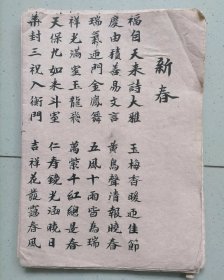 新春
福自天来詩大雅 玉梅香暖迎佳節
慶由積善易文言 黄鳥聲清報春
瑞氣迎門金鳳 五風十雨皆為瑞
祥光滿室玉龍飛 萬紫千紅總是春
天保九如斗室 仁寿鏡光涵日
華封三祝入衡門 吉祥花春風